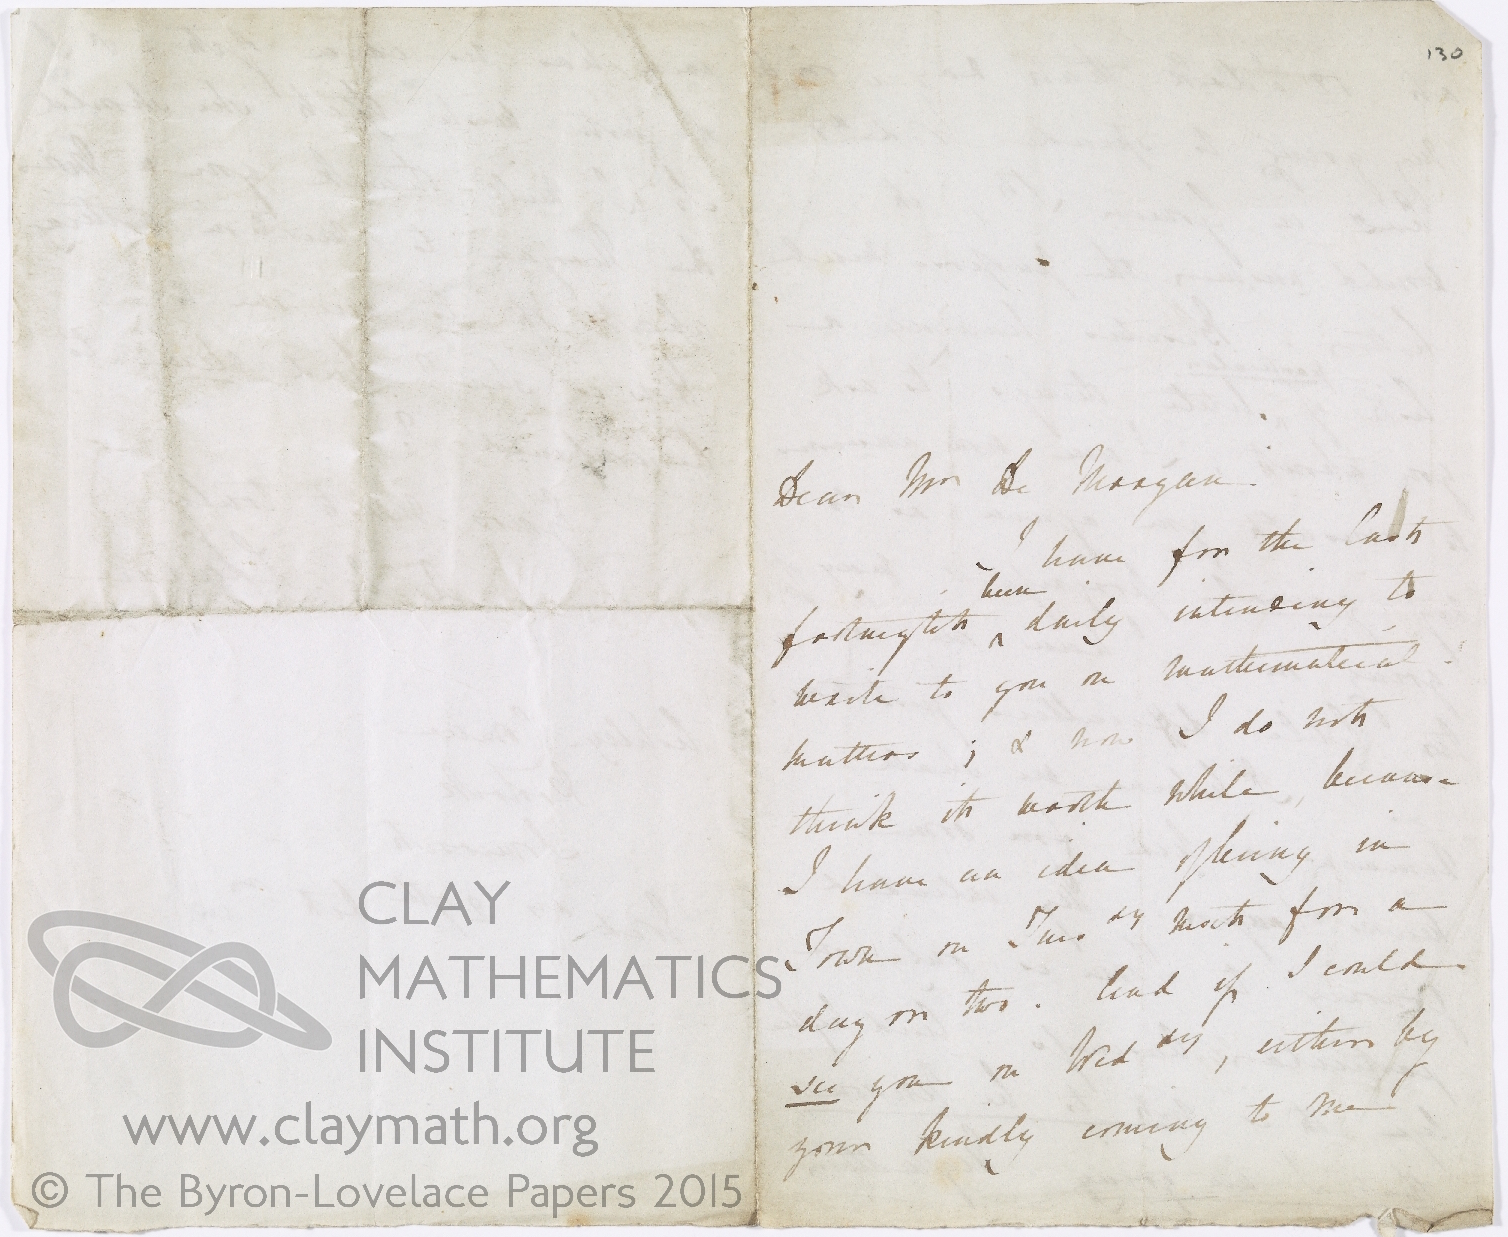 130
Dear Mr De Morgan.
I have for the last
fortnight ^ been daily intending to
write to you on mathematical
matters ; & now I do not
think it worth while, because
I have an idea of being in
Town on Tues dy next for a
day or two. And if I could
see you on Wed dy, either by
your kindly coming to me
CLAY
MATHEMATICS
INSTITUTE
www.claymath.org
© The Byron-Lovelace Papers 2015